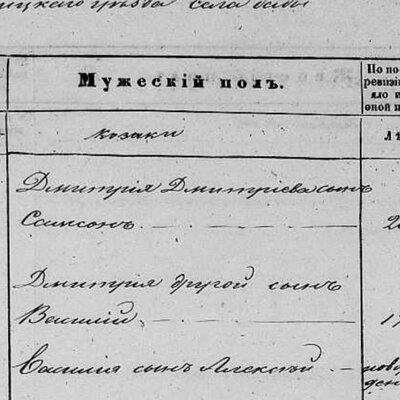 ицкаго уѣзда села Бабы
Мужескій полъ.
По по
ревизі
яло и
оной п
козаки
Лѣ
Дмитрія Дмитріева сынъ
Самсонъ
2
Дмитрія другой сынъ
Василій
1
Василія сынъ Алексѣй – ново